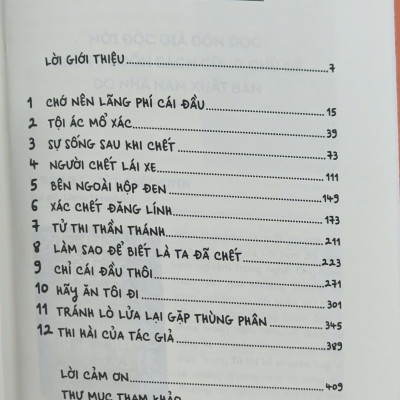 LỜI GIỚI THIỆU 7
1 CHỚ NÊN LÃNG PHÍ CÁI ĐẦU 15
2 TỘI ÁC MỔ XÁC 39
3 SỰ SỐNG SAU KHI CHẾT 73
4 NGƯỜI CHẾT LÁI XE 111
5 BÊN NGOÀI HỘP ĐEN 149
6 XÁC CHẾT ĐĂNG LÍNH 173
7 TỬ THI THẦN THÁNH 211
8 LÀM SAO ĐỂ BIẾT LÀ TA ĐÃ CHẾT 223
9 CHỈ CÁI ĐẦU THÔI 271
10 HÃY ĂN TÔI ĐI 301
11 TRÁNH LÒ LỬA LẠI GẶP THÙNG PHÂN 345
12 THI HÀI CỦA TÁC GIẢ 389
LỜI CẢM ƠN 409
THƯ MỤC THAM KHẢO